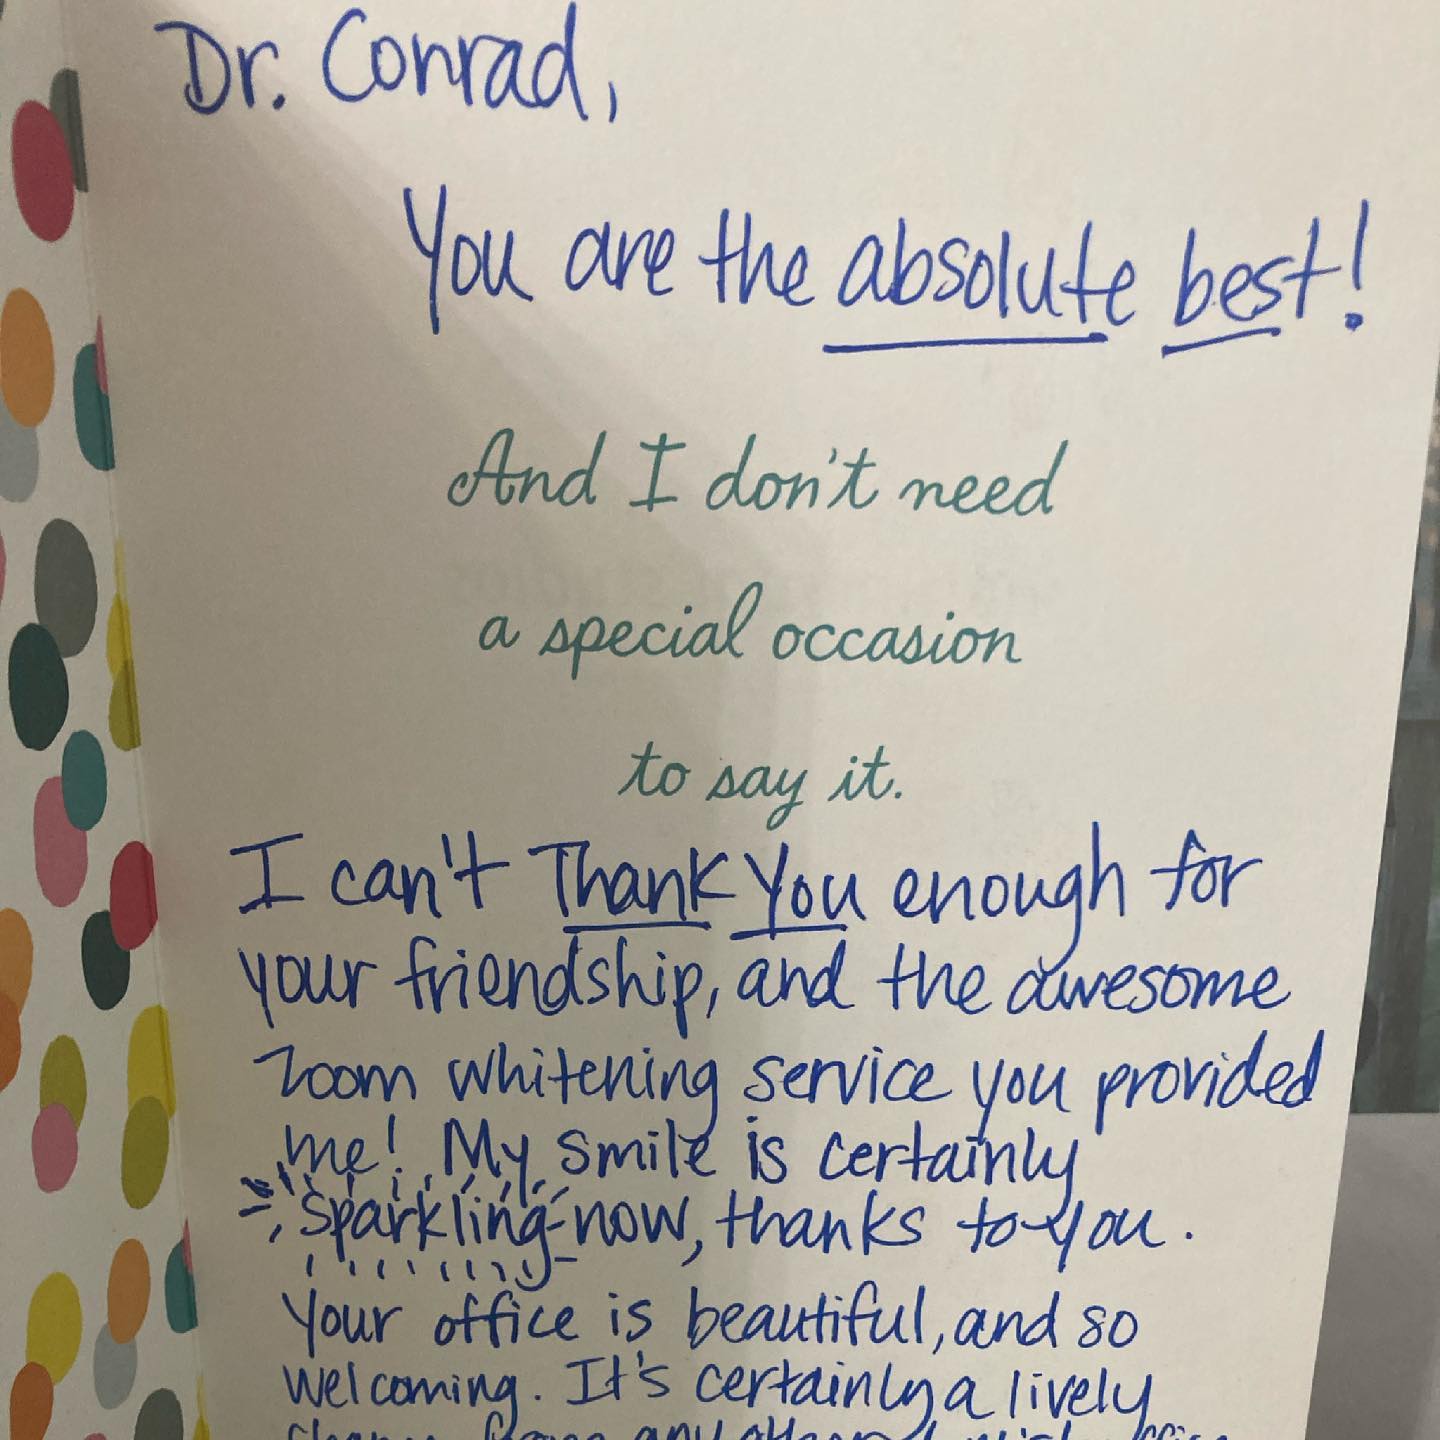 Dr. Conrad,
You are the absolute best!
And I don't need
a special occasion
to say it.
I can't Thank You enough for
your friendship, and the awesome
zoom whitening service you provided
me! My smile is certainly
sparkling now, thanks to you.
Your office is beautiful, and so
welcoming. It's certainly a lively
any other